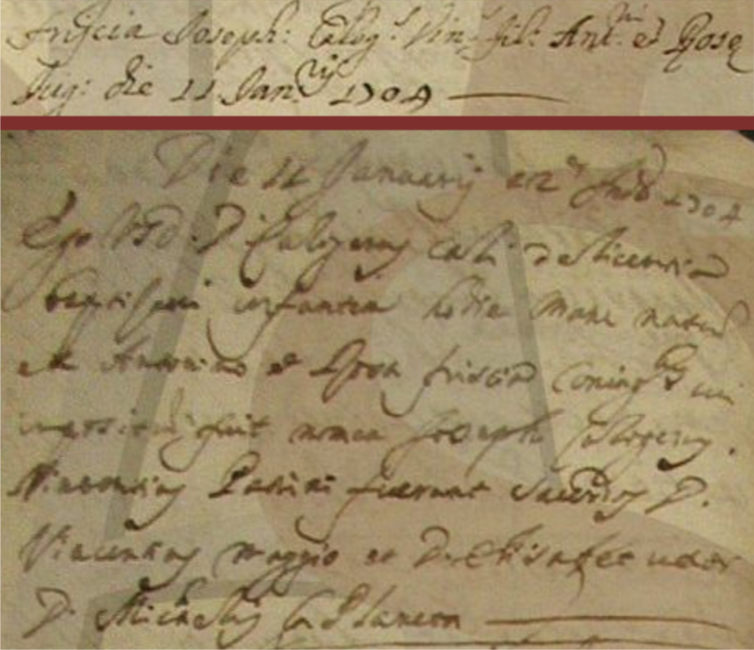 Friscia Joseph: Calog:s Vin:s fil: Ant:ni et Rose
Jug: die 11 Jan:rij 1704
Die 11 Januarij 12e Ind 1704
Ego D. Calogerus cali de licentia
baptisavi infantem hodie mane natum
ex Antonino et Rosa friscia coniug cui
impositum fuit nomen Joseph Calogerus
Vincentius Patrini fuerunt D.
Vincentius maggio et D. Elisabet uxor
D. Michaelis